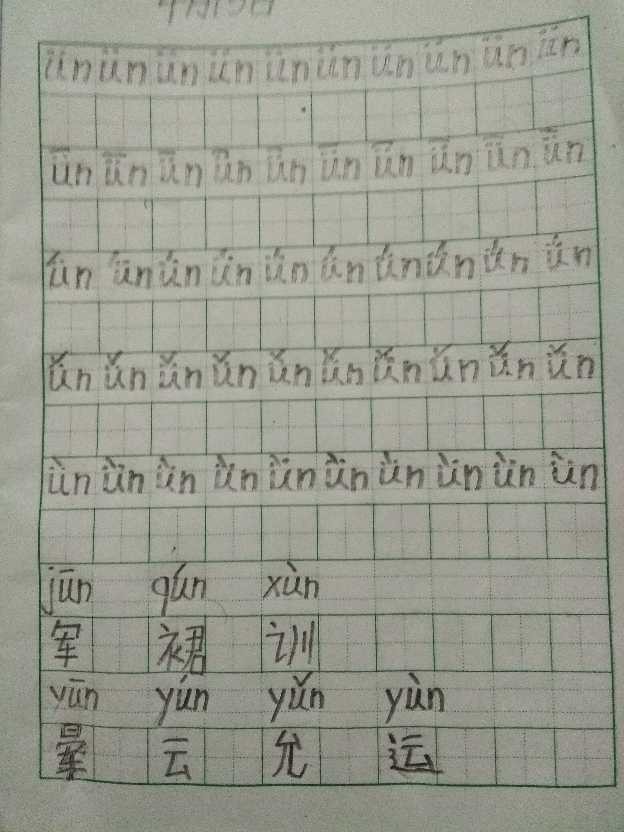 ün ün ün ün ün ün ün ün ün ün
ǖn ǖn ǖn ǖn ǖn ǖn ǖn ǖn ǖn ǖn
ǘn ǘn ǘn ǘn ǘn ǘn ǘn ǘn ǘn ǘn
ǚn ǚn ǚn ǚn ǚn ǚn ǚn ǚn ǚn ǚn
ǜn ǜn ǜn ǜn ǜn ǜn ǜn ǜn ǜn ǜn
jūn qún xùn
军 裙 训
yūn yún yǔn yùn
晕 云 允 运